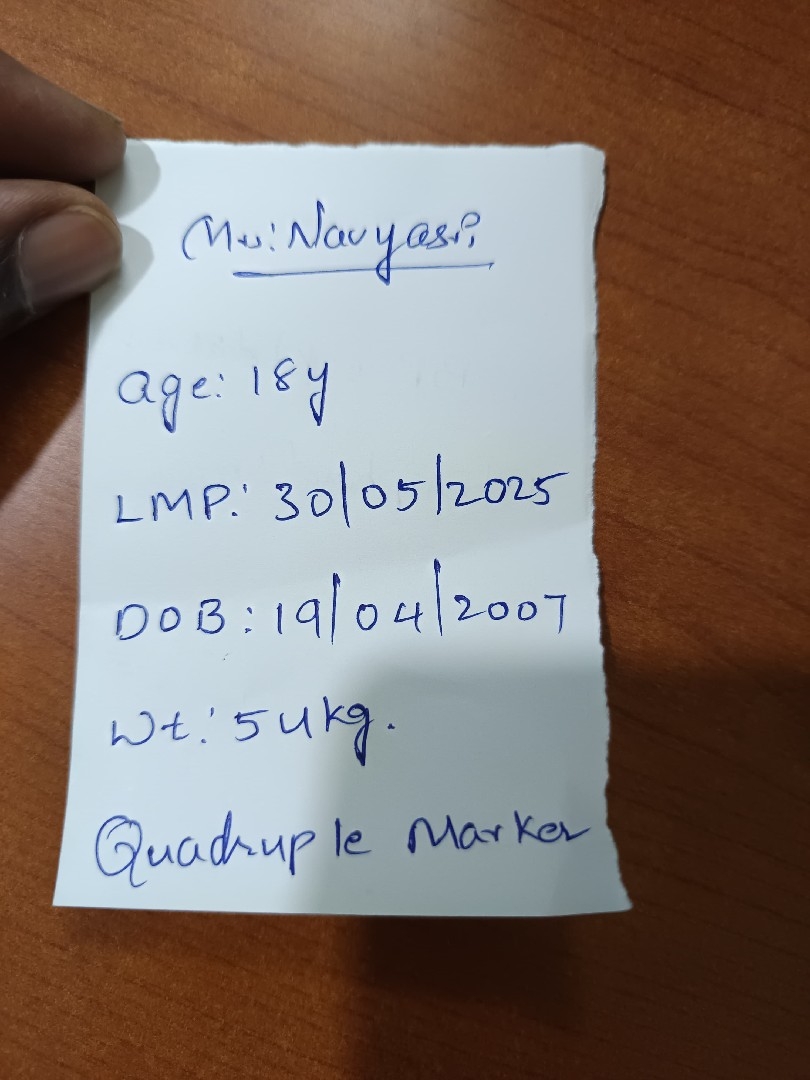 Mrs: Navyasri
Age: 18y
LMP: 30/05/2025
DOB: 19/04/2007
Wt: 54kg.
Quadruple Marker